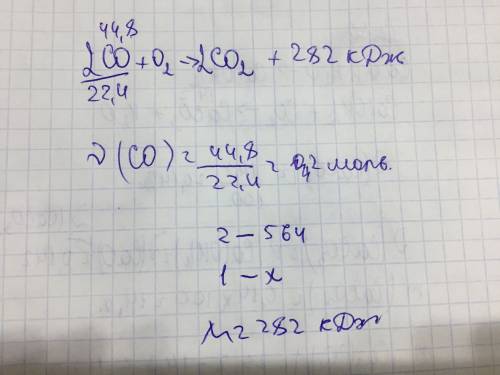 44,8
2CO + O₂ → 2CO₂ + 282 кДж
22,4
ν (CO) = 44,8 / 22,4 = 0,2 моль.
2 — 564
1 — x
x = 282 кДж